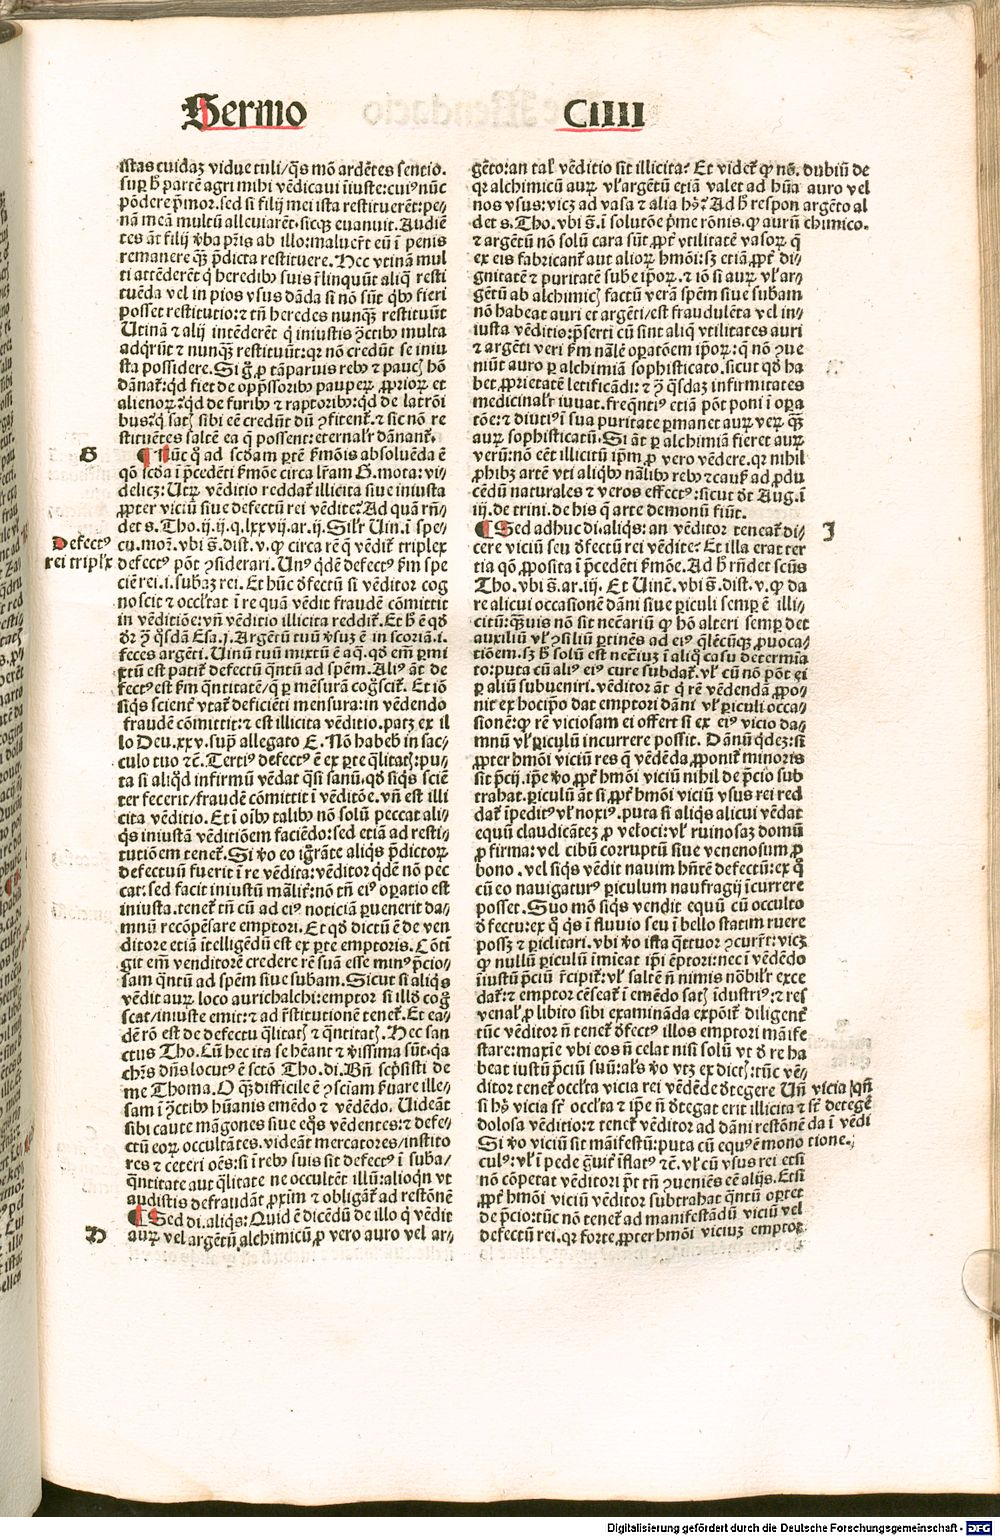 Sermo CIIII
istas cuidaȝ vidue tuli/q̃s mō ardētes sentio.
suꝑ h̓ partē agri mihi vēdicaui īiuste: cuiꝰ nūc
pōdere p̄mor. sed si filij mei ista restituerēt: pe-
nam meā multū alleuiarēt. sicqꝫ euanuit. Audiē
tes āt filij v̓ba pr̄is ab illo: maluer̄t eū ī penis
remanere qꝫ p̄dicta restituere. Hec vtinā mul
ti attēderēt q̇ heredibꝰ suis r̓linquūt aliq̄ resti
tuēda vel in pios vsus dāda si nō sūt q̇bꝰ fieri
posset restitutio: ⁊ tn̄ heredes nunqꝫ restituūt
Utinā ⁊ alij intēderēt q̇ iniustis ꝯctibꝰ multa
adq̇rūt ⁊ nunqꝫ restituūt: qꝛ nō credūt se iniu
sta possidere. Si g̊ ꝓ tā paruis rebꝰ ⁊ paucꝭ hō
dānat̃: qd̓ fiet de opp̄ssoribꝰ pauperꝝ ꝓprioꝝ et
alienoꝝ? qd̓ de furibꝰ ⁊ raptoribꝰ: qd̓ de latrōi
bus? q̇ satꝭ sibi eē credūt dū ꝯfitent̃. ⁊ sic nō re
stituētes saltē ea q̄ possent: eternal̓r dānant̃.
G ¶ Nūc q̊ ad scd̓am ꝑtē s̓mōis absoluēda ē
qō scd̓a ī p̄cedēti s̓mōe circa lr̄am G. mota: vi-
delicȝ: Utꝝ venditio reddat̃ illicita siue iniusta
ꝓpter viciū siue defectū rei vēdite? Ad quā rn̄-
det s. Tho. ij. ij. q. lxxvij. ar. ij. Sil̓r Uin. ī spe-
Defectꝰ
rei tripl̓x
cu. moꝝ. vbi s̄. dist. v. ꝙ circa rē q̄ vēdit̃ triplex
defectꝰ pōt ꝯsiderari. Unꝰ qd̓ē defectꝰ s̓m spe
ciē rei. i. subaȝ rei. Et hūc d̓fectū si vēditor cog
noscit ⁊ occl̓tat ī re quā vēdit fraudē cōmittit
in vēditiōe: vn̄ vēditio illicita reddit̃. Et h̓ ē qd̓
dr̄ ꝯ q̄sdā Esa. j. Argētū tuū v̓suȝ ē in scoriā. i.
feces argēti. Uinū tuū mixtū ē aq̄. qd̓ em̄ ꝑmi
xtū est patit̃ defectū q̄ntū ad spēm. Aliꝰ āt de
fectꝰ est s̓m q̄ntitatē/q̄ ꝑ mēsurā cog̊scit̃. Et iō
siq̇s scient̃ vtat̃ deficiēti mensura: in vēdendo
fraudē cōmittit: ⁊ est illicita vēditio. patȝ ex il
lo Deu. xxv. supͣ allegato E. Nō habebꝭ in sac-
culo tuo ⁊c̄. Tertiꝰ defectꝰ ē ex ꝑte q̄litatꝭ: pu-
ta si aliqd̓ infirmū vēdat q̄si sanū. qd̓ siq̇s sciē
ter fecerit/fraudē cōmittit ī vēditōe. vn̄ est illi
cita vēditio. Et ī oībꝰ talibꝰ nō solū peccat ali-
q̇s iniustā vēditiōem faciēdo: sed etiā ad resti-
tutiōem tenet̃. Si v̓o eo ig̊rāte aliq̇s p̄dictoꝝ
defectuū fuerit ī re vēdita: vēditor qd̓ē nō pec
cat: sed facit iniustū mālit̃: nō tn̄ eiꝰ oꝑatio est
iniusta. tenet̃ tn̄ cū ad eiꝰ noticiā ꝑuenerit da-
mnū recōpēsare emptori. Et qd̓ dictū ē de ven
ditore etiā ītelligēdū est ex ꝑte emptoris. Cōtī
git em̄ venditorē credere rē suā esse minꝰ p̄cio-
sam q̄ntū ad spēm siue subam. Sicut si aliq̇s
vēdit auꝝ loco aurichalci: emptor si illd̓ cog̊
scat/iniuste emit: ⁊ ad r̓stitutionē tenet̃. Et ea-
dē rō est de defectu q̄litatꝭ ⁊ q̄ntitatꝭ. Hec san
ctus Tho. Cū hec ita se hēant ⁊ v̓issima sūt. qa
chꝛ̄s dn̄s locutꝰ ē sctō Tho. di. Bn̄ scp̄sisti de
me Thoma. O qꝫ difficile ē ꝯsciam s̓uare ille-
sam ī ꝯctibꝰ hūanis emēdo ⁊ vēdēdo. Uideāt
sibi caute māgones siue eq̊s vēdentes: ⁊ defe-
ctū eoꝝ occultātes. videāt mercatores/instito
res ⁊ ceteri oēs: si ī rebꝰ suis sit defectꝰ ī suba/
q̄ntitate aut q̄litate ne occultēt illū: alioqn̄ vt
audistis defraudāt ꝓxim̄ ⁊ obligāt̃ ad restōnē
H ¶ Sed di. aliq̇s: Quid ē dicēdū de illo q̇ vēdit
auꝝ vel argētū alchimicū ꝓ vero auro vel ar-
gēto: an tal̓ vēditio sit illicita? Et videt̃ ꝙ nō. dubiū de
qꝛ alchimicū auꝝ vl̓ argētū etiā valet ad hūa auro vel
nos vsus: vicȝ ad vasa ⁊ alia hꝰ? Ad h̓ respon argēto al
det s. Tho. vbi s̄. ī solutōe p̄me rōnis. ꝙ aurū chimico.
⁊ argētū nō solū cara sūt ꝓpt̃ vtilitatē vasoꝝ q̄
ex eis fabricant̃ aut alioꝝ hmōi: sȝ etiā ꝓpt̃ di-
gnitatē ⁊ puritatē sube ip̄oꝝ. ⁊ iō si auꝝ vl̓ ar-
gētū ab alchimicꝭ factū verā spēm siue subam
nō habeat auri et argēti/est fraudulēta vel in-
iusta vēditio: p̄serti cū sint aliq̄ vtilitates auri
⁊ argēti veri s̓m nālē oꝑatōem ip̄oꝝ: q̄ nō ꝯue
niūt auro ꝑ alchimiā sophisticato. sicut qd̓ ha
bet ꝓprietatē letificādi: ⁊ ꝯ q̄sdaȝ infirmitates
medicinal̓r iuuat. freq̄ntiꝰ etiā pōt poni ī oꝑa
tōe: ⁊ diutiꝰ ī sua puritate ꝑmanet auꝝ veꝝ qꝫ
auꝝ sophisticatū. Si āt ꝑ alchimiā fieret auꝝ
verū: nō eēt illicitū ip̄m ꝓ vero vēdere. qꝛ nihil
ꝓhibȝ artē vti aliq̇bꝰ nālibꝰ rebꝰ ⁊ cauẜ ad ꝓdu
cēdū naturales ⁊ veros effectꝰ: sicut dt̄ Aug. ī
iij. de trini. de his q̄ arte demonū fiūt.
J ¶ Sed adhuc di. aliq̇s: an vēditor teneat̃ di-
cere viciū seu d̓fectū rei vēdite? Et illa erat ter
tia qō ꝓposita ī p̄cedēti s̓mōe. Ad h̓ rn̄det scūs
Tho. vbi s̄. ar. iij. Et Uincē. vbi s̄. dist. v. ꝙ da
re alicui occasionē dāni siue ꝑiculi semꝑ ē illi-
citū: qꝫuis nō sit necāriū ꝙ hō alteri semꝑ det
auxiliū vl̓ ꝯsiliū ꝑtinēs ad eiꝰ q̄lēcūqꝫ ꝓuoca-
tiōem. sȝ h̓ solū est neciuȝ ī aliq̊ casu determīa
to: puta cū aliꝰ eiꝰ cure subdat̃. vl̓ cū nō pōt ei
ꝑ aliū subueniri. vēditor āt q̇ rē vēdendā ꝓpo-
nit ex hocip̄o dat emptori dāni vl̓ ꝑiculi occa-
sionē: ꝙ rē viciosam ei offert si ex eiꝰ vicio da-
mnū vl̓ ꝑiculū incurrere possit. Dānū qd̓eȝ: si
ꝓpter hmōi viciū res q̄ vēdēda ꝓponit̃ minoris
sit p̄cij. ip̄e v̓o ꝓpt̃ hmōi viciū nihil de p̄cio sub
trahat. ꝑiculū āt si ꝓpt̃ hmōi viciū vsus rei red
dat̃ īpeditꝰ vl̓ noxiꝰ. puta si aliq̇s alicui vēdat
equū claudicāteȝ ꝓ veloci: vl̓ ruinosaȝ domū
ꝓ firma: vel cibū corruptū siue venenosum ꝓ
bono. vel siq̇s vēdit nauim hn̄tē defectū: ex q̊
cū eo nauigaturꝰ ꝑiculum naufragij īcurrere
posset. Suo mō siq̇s vendit equū cū occulto
d̓fectu: ex q̊ q̇s ī fluuio seu ī bello statim ruere
possȝ ⁊ ꝑiclitari. vbi v̓o ista q̄ttuor ꝯcurrūt: vicȝ
ꝙ nullū ꝑiculum īmieat ip̄i ēptori: nec ī vēdēdo
īiustū p̄ciū r̓cipit̃: vl̓ saltē n̄ nimis nōbil̓r exce
dat̃: ⁊ emptor cēseat̃ ī emēdo satꝭ īdustriꝰ: ⁊ res
venal̓ ꝓ libito sibi examināda expōit̃ diligent̃
tūc vēditor n̄ tenet̃ d̓fectꝰ illos emptori māife
stare: maxīe vbi eos n̄ celat nisi solū vt d̓ re ha
beat iustū p̄ciū suū: al̓s v̓o vtȝ ex dictꝭ: tūc vē-
ditor tenet̃ occl̓ta vicia rei vēdēde d̓tegere Un̄ vicia ꝗn̄
si hꝰ vicia sr̄ occl̓ta ⁊ ip̄e n̄ d̓tegat erit illicita ⁊ sr̄ detegē
dolosa vēditio: ⁊ tenet̃ vēditor ad dāni restōnē da ī vēdi
Si v̓o viciū sit māifestū: puta cū equꝰ ē mono tione.
culꝰ: vl̓ ī pede g̊uit̃ īflatꝰ ⁊c̄. vl̓ cū vsus rei etsi
nō cōpetat vēditori p̄t tn̄ ꝯueniēs eē alijs. Etsi
ꝓpt̃ hmōi viciū vēditor subtrahat q̄ntū oꝑtet
de p̄cio: tūc nō tenet̃ ad manifestādū viciū vel
defectū rei. qꝛ forte ꝓpter hmōi viciuȝ emptor
Digitalisierung gefördert durch die Deutsche Forschungsgemeinschaft - DFG